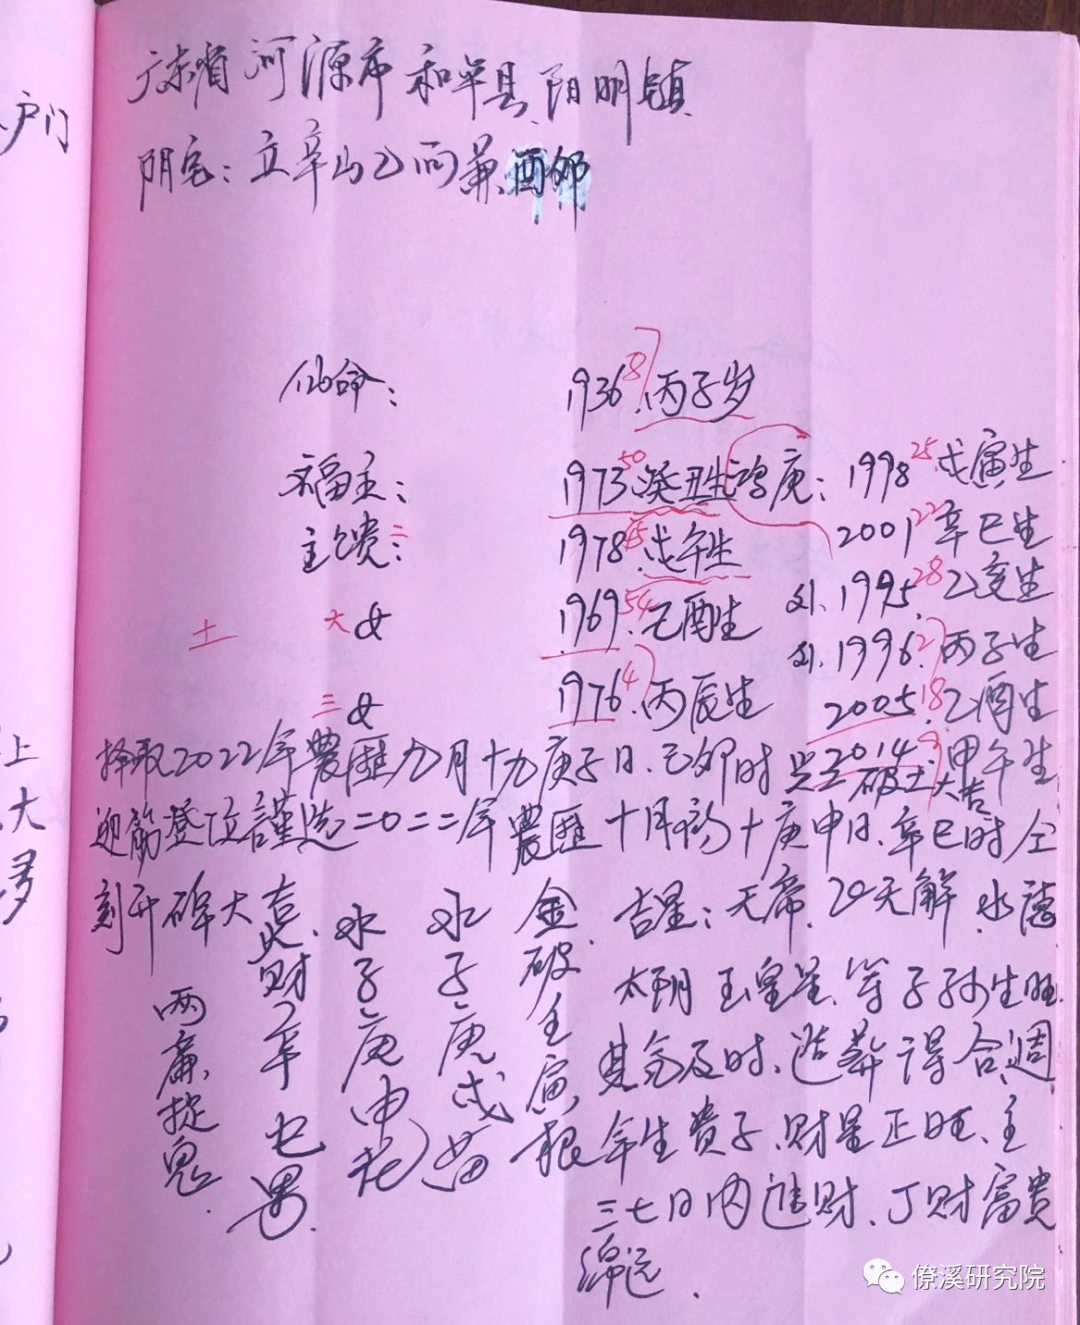 户门
广东省河源市和平县.阳明镇
阴宅：立辛山乙向兼酉卯
仙命： 1936.8丙子岁
福主： 1973.50癸丑生 庚：1998.25戊寅生
主贵：二 1978.45戊午生 2001.22辛巳生
土 大女 1969.54乙酉生 外.1995.28乙亥生
外.1996.27丙子生
三女 1976.47丙辰生 2005.18乙酉生
2014.9甲午生
择取2022年農歷九月十九庚子日.己卯时 破土大吉
迎筋登位謹选二0二二年農歷十月初十庚申日.辛巳时全
刻开碑大吉.
吉星：天帝.20天解.水德
太阳玉皇星.等子孙生旺
其气及时.造葬得合.週
年生贵子.财星正旺.主
三七日内進财.丁财富贵
绵远.
金.破壬寅.根
水子庚戌苗
水子庚申花
财辛巳果.
两.捉鬼.
上
大
僚溪研究院